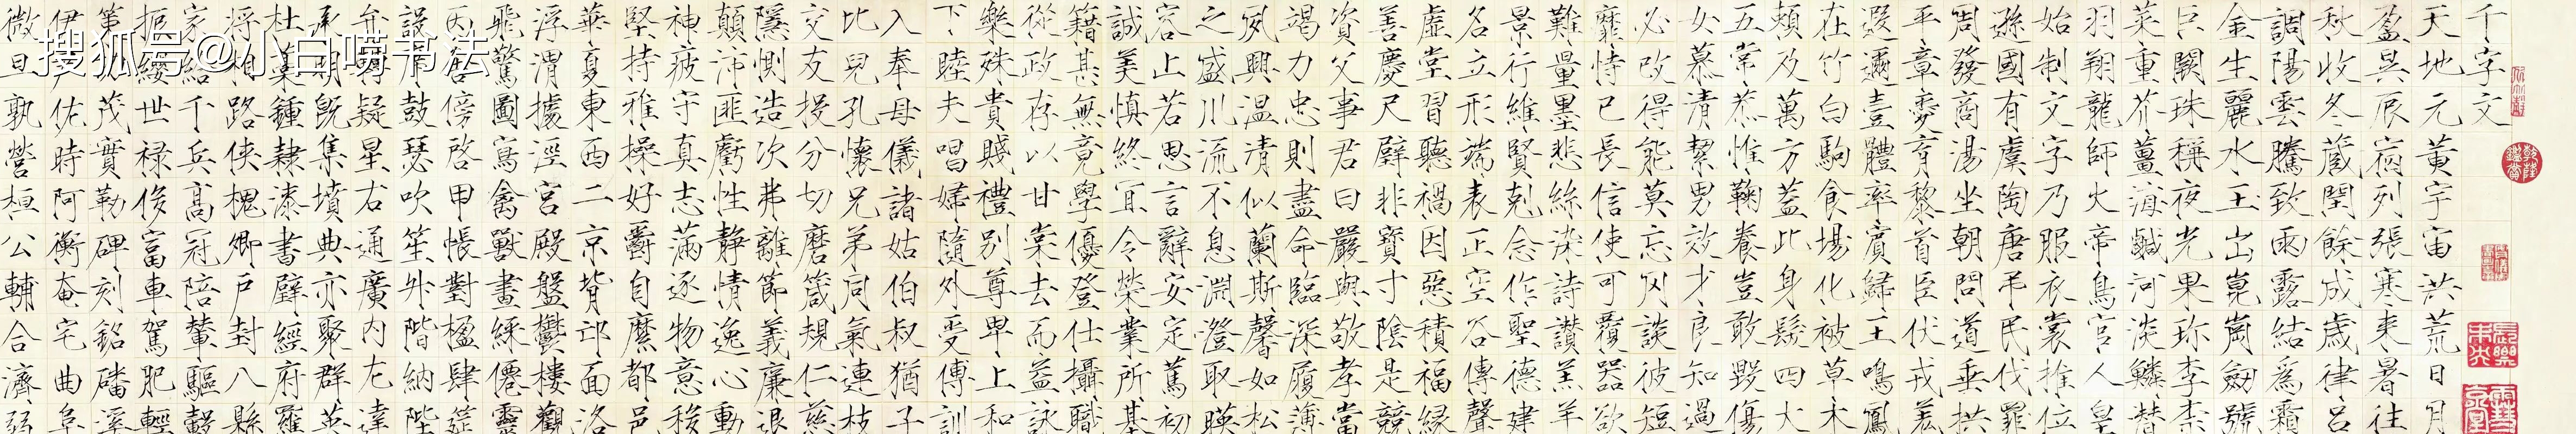 千字文
天地元黃宇宙洪荒日月
盈昃辰宿列張寒来暑往
秋收冬蔵閏餘成歲律呂
調陽雲騰致雨露結為霜
金生麗水玉出崑崗劔號
巨闕珠稱夜光果珍李柰
菜重芥薑海鹹河淡鱗潛
羽翔龍師火帝鳥官人皇
始制文字乃服衣裳推位
遜國有虞陶唐弔民伐罪
周發商湯坐朝問道垂拱
平章愛育黎首臣伏戎羌
遐邇壹體率賓歸王鳴鳳
在竹白駒食場化被草木
頼及萬方蓋此身髮四大
五常恭惟鞠養豈敢毀傷
女慕清絜男效才良知過
必改得能莫忘罔談彼短
靡恃己長信使可覆器欲
難量墨悲絲染詩讃羔羊
景行維賢剋念作聖德建
名立形端表正空谷傳聲
虛堂習聽禍因惡積福緣
善慶尺璧非寶寸陰是競
資父事君曰嚴與敬孝當
竭力忠則盡命臨深履薄
夙興溫凊似蘭斯馨如松
之盛川流不息淵澄取暎
容止若思言辭安定篤初
誠美慎終宜令榮業所基
籍甚無竟學優登仕攝職
從政存以甘棠去而益詠
樂殊貴賤禮別尊卑上和
下睦夫唱婦隨外受傅訓
入奉母儀諸姑伯叔猶子
比兒孔懷兄弟同氣連枝
交友投分切磨箴規仁慈
隱惻造次弗離節義廉退
顛沛匪虧性靜情逸心動
神疲守真志滿逐物意移
堅持雅操好爵自縻都邑
華夏東西二京背邙面洛
浮渭據涇宮殿盤鬱樓觀
飛驚圖寫禽獸畫綵僊靈
丙舍傍啓甲帳對楹肆筵
設席鼓瑟吹笙升階納陛
弁轉疑星右通廣內左達
承明既集墳典亦聚群英
杜稾鍾隸漆書壁經府羅
將相路俠槐卿戶封八縣
家給千兵高冠陪輦驅轂
振纓世祿侈富車駕肥輕
策功茂實勒碑刻銘磻溪
伊尹佐時阿衡奄宅曲阜
微旦孰營桓公輔合濟弱
搜狐号@小白唠书法
乾隆鑑賞